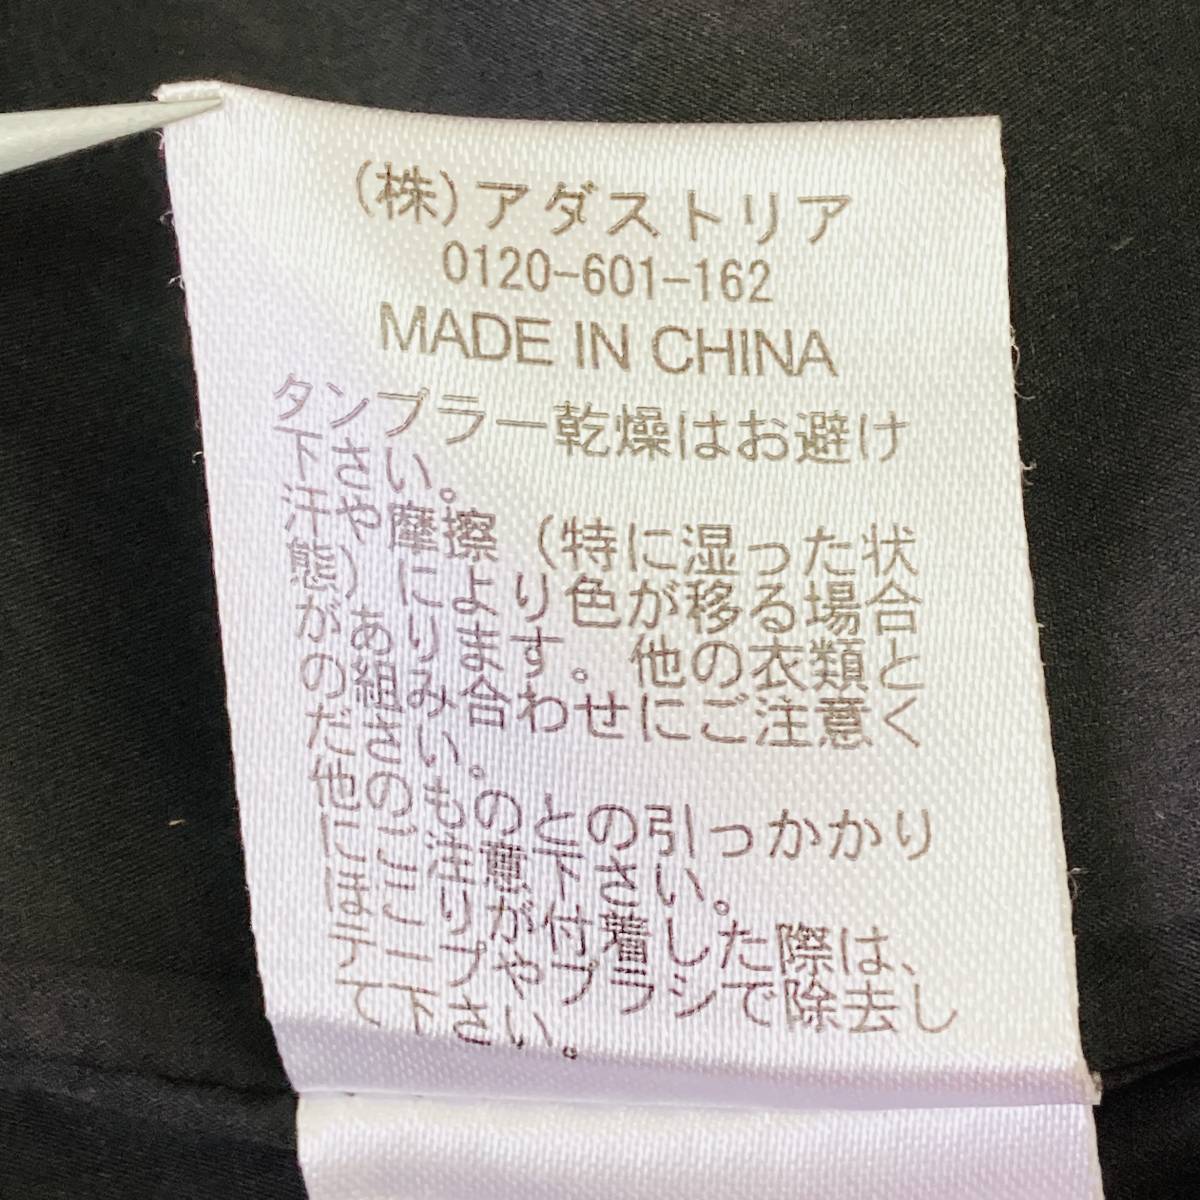 (株)アダストリア
0120-601-162
MADE IN CHINA
タンブラー乾燥はお避け
下さい。
汗や摩擦（特に湿った状
態）により色が移る場合
があります。他の衣類と
の組み合わせにご注意く
ださい。
他のものとの引っかかり
にご注意下さい。
ほこりが付着した際は、
テープやブラシで除去し
て下さい。